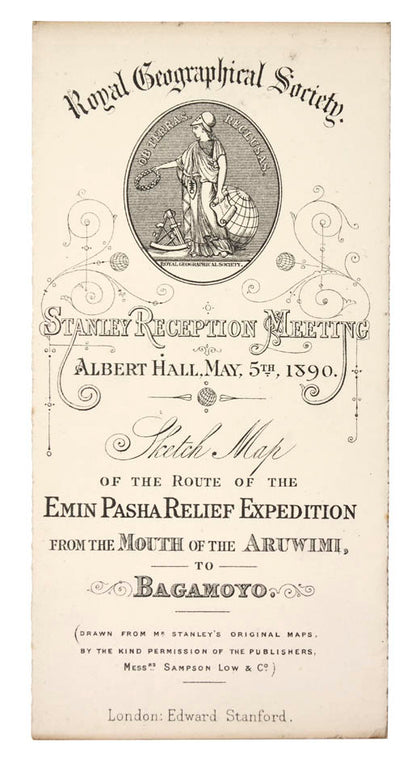 Royal Geographical Society.
OB TERRAS RECLUSAS.
ROYAL GEOGRAPHICAL SOCIETY.
STANLEY RECEPTION MEETING
ALBERT HALL, MAY, 5TH, 1890.
Sketch Map
OF THE ROUTE OF THE
EMIN PASHA RELIEF EXPEDITION
FROM THE MOUTH OF THE ARUWIMI,
TO
BAGAMOYO.
(DRAWN FROM MR STANLEY'S ORIGINAL MAPS,
BY THE KIND PERMISSION OF THE PUBLISHERS,
MESSRS SAMPSON LOW & CO.)
London: Edward Stanford.